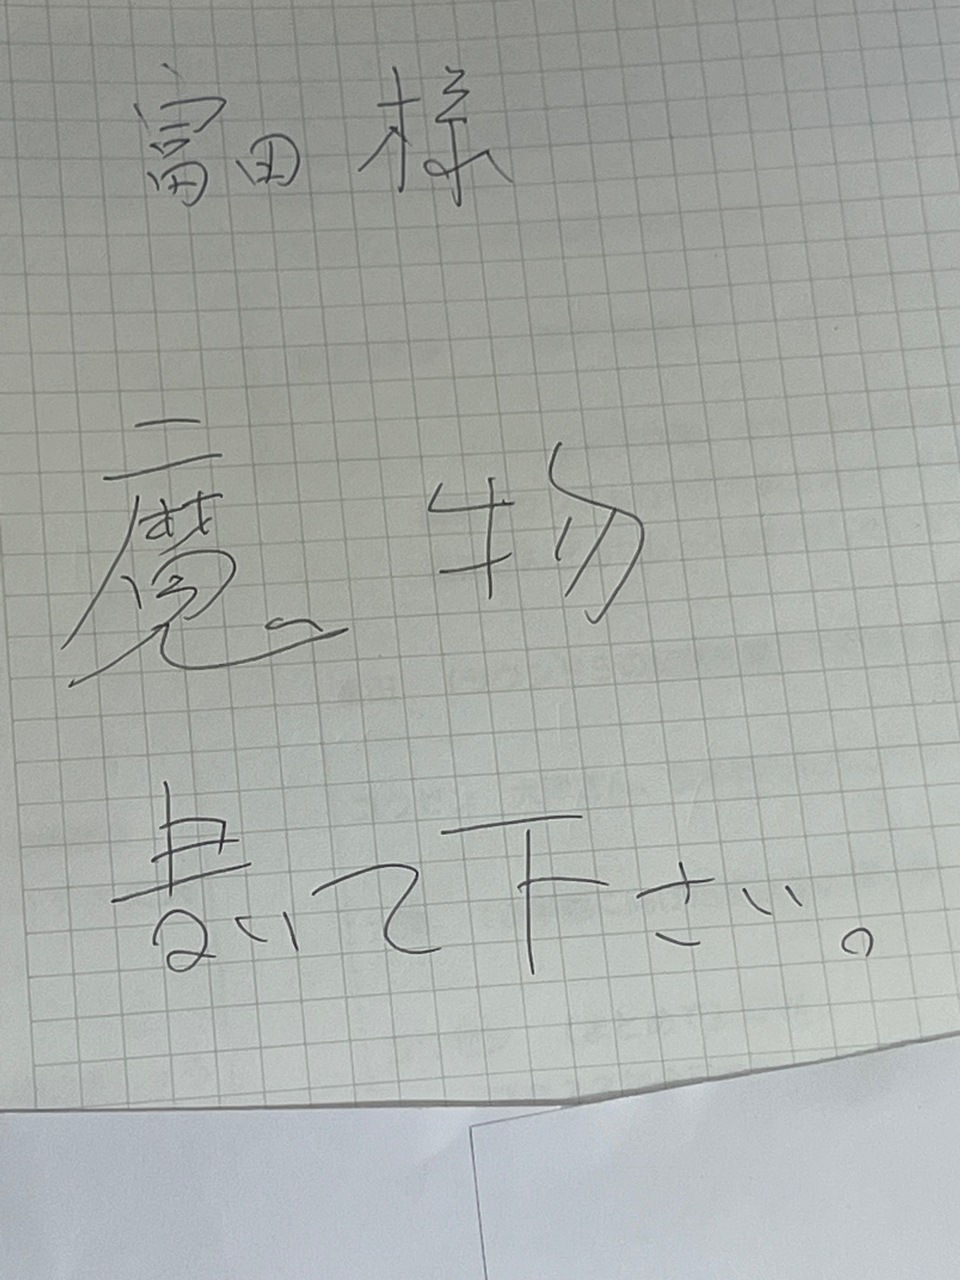 富田 様
魔物
書いて下さい。